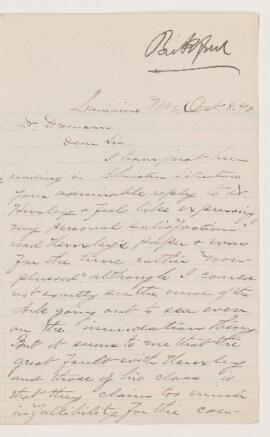 Oct 8, 90
Dear Sir
I have just been
reading in Christian Literature
your admirable reply to Dr.
Huxley & feel like expressing
my personal satisfaction. I
read Huxley's paper & was
for the time rather "non-
plussed" although I could
not exactly see the view of the
Ark going out to sea even
on the inundation theory.
But it seems to me that the
great fault with Huxley
and those of his class is
that they claim too much
infallibility for the con-